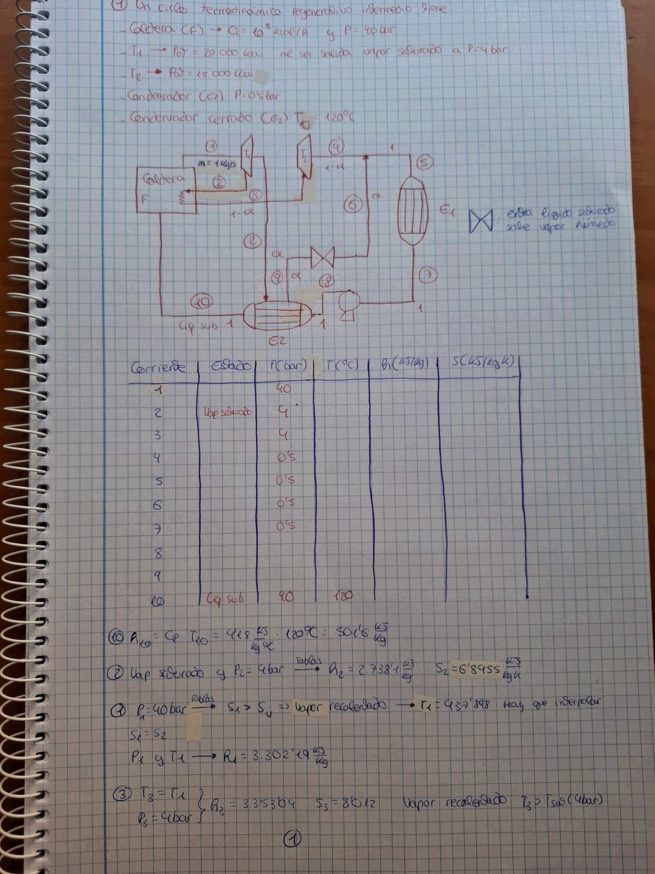 ① Un ciclo termodinámico regenerativo intermedio tiene
- Caldera (F) → Q = 10⁸ kcal/h y P = 40 bar
- T1 → Pot = 20 000 kW, salida vapor saturado a P=4 bar
- T2 → Pot = 15.000 kW
- Condensador (E1) P=0'5 bar
- Condensador cerrado (E2) T10 = 120ºC
①
T1
T2
④
m = 1 kg/s
1-α
1
⑤
Caldera
F
②
③
1-α
⑥
α
E1
entra líquido saturado
sale vapor húmedo
②
α
⑨
α
⑧
⑦
⑩
Liq sub
1
1
1
E2
Corriente Estado P(bar) T(ºC) h(kJ/kg) S(kJ/kgK)
1 40
2 Vap saturado 4
3 4
4 0'5
5 0'5
6 0'5
7 0'5
8
9
10 Liq sub 40 120
⑩ h10 = Cp T10 = 4'18 kJ/kgºC · 120ºC = 501'6 kJ/kg
② Vap saturado y P2 = 4 bar tablas→ h2 = 2.738'1 kJ/kg S2 = 6'8955 kJ/kgK
① P1 = 40 bar tablas→ S1 > Sv ⇒ Vapor recalentado → T1 = 437'898 hay que interpolar
S1 = S2
P1 y T1 → h1 = 3.302'19 kJ/kg
③ T3 = T1
P3 = 4 bar } h3 = 3.353'04 S3 = 8'012 Vapor recalentado T3 > Tsat (4 bar)
①